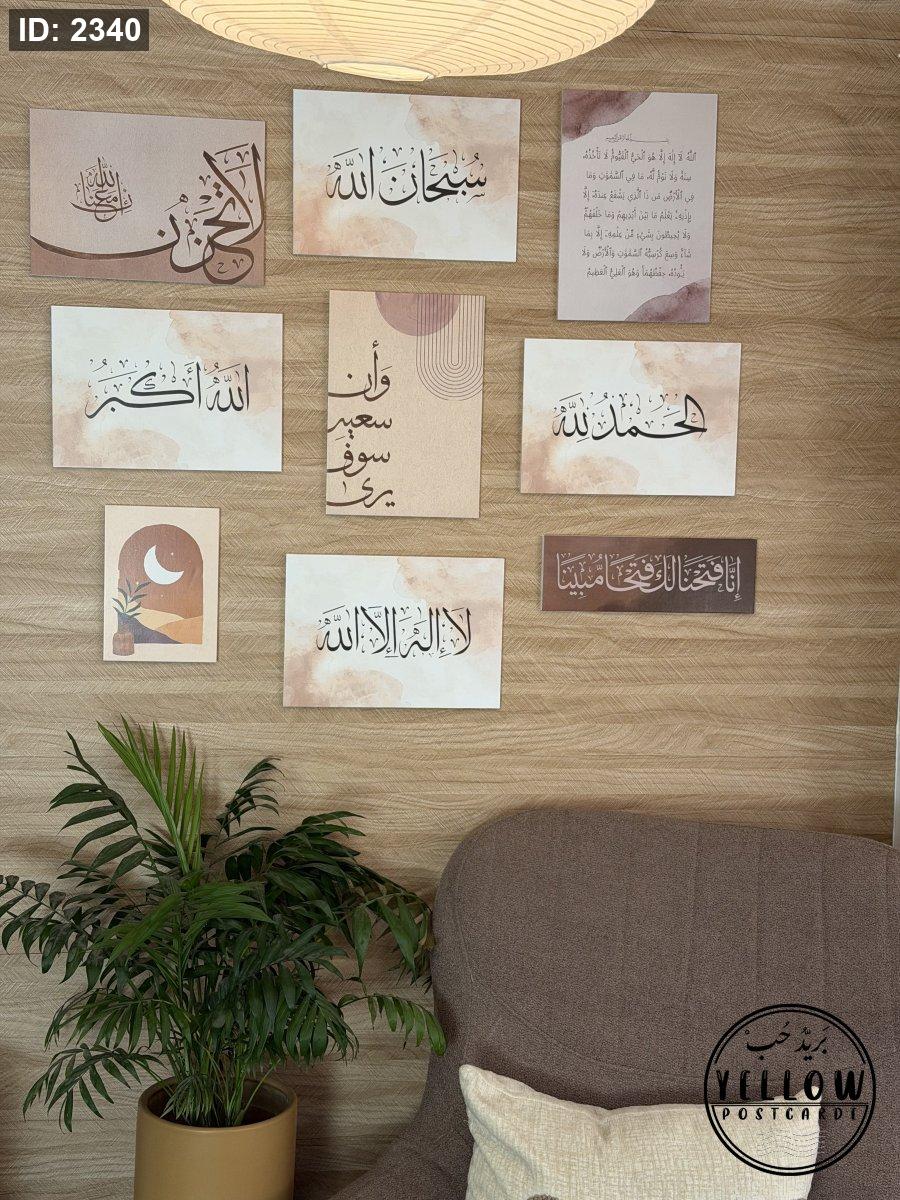 ID: 2340
لَا تَحْزَن
إِنَّ اللهَ مَعَنَا
سُبْحَانَ اللّٰه
اللَّهُ لَا إِلَٰهَ إِلَّا هُوَ الْحَيُّ الْقَيُّومُ لَا تَأْخُذُهُ
سِنَةٌ وَلَا نَوْمٌ لَّهُ مَا فِي السَّمَٰوَٰتِ وَمَا
فِي الْأَرْضِ مَن ذَا الَّذِي يَشْفَعُ عِندَهُ إِلَّا
بِإِذْنِهِ يَعْلَمُ مَا بَيْنَ أَيْدِيهِمْ وَمَا خَلْفَهُمْ
وَلَا يُحِيطُونَ بِشَيْءٍ مِّنْ عِلْمِهِ إِلَّا بِمَا
شَاءَ وَسِعَ كُرْسِيُّهُ السَّمَٰوَٰتِ وَالْأَرْضَ وَلَا
يَـُٔودُهُ حِفْظُهُمَا وَهُوَ الْعَلِيُّ الْعَظِيمُ
اللّٰهُ أَكْبَرُ
وَأن
سعيه
سوف
يرى
الحَمْدُ لِلّٰه
لَا إِلٰهَ إِلَّا اللّٰه
إِنَّا فَتَحْنَا لَكَ فَتْحًا مُّبِينًا
بَرِيدُ حُب
YELLOW
POSTCARDE